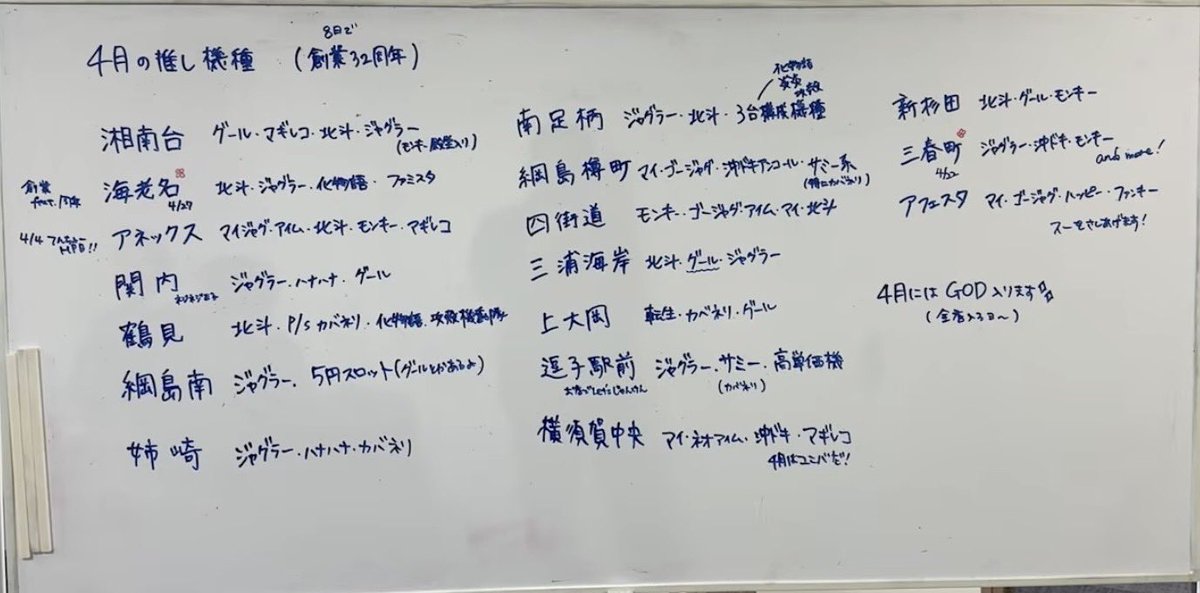 8日で
4月の推し機種 (創業32周年)
湘南台 グール・マギレコ・北斗・ジャグラー
(モンキー殿堂入り)
創業
海老名 北斗・ジャグラー・化物語・ファミスタ
4/27
4/4
アネックス マイジャグ・アイム・北斗・モンキー・マギレコ
関内 ジャグラー・ハナハナ・グール
鶴見 北斗・P/Sカバネリ・化物語・
綱島南 ジャグラー、5円スロット(グールとかあるよ)
姉崎 ジャグラー・ハナハナ・カバネリ
化物語
南足柄 ジャグラー・北斗・3台構成機種
綱島樽町 マイ・ゴージャグ・沖ドキアンコール・サミー系
(特にカバネリ)
四街道 モンキー・ゴージャグ・アイム・マイ・北斗
三浦海岸 北斗・グール・ジャグラー
上大岡 転生・カバネリ・グール
逗子駅前 ジャグラー・サミー・高単価機
(カバネリ)
横須賀中央 マイ・ネオアイム・沖ドキ・マギレコ
4月はユニバだ!
新杉田 北斗・グール・モンキー
三春町 ジャグラー・沖ドキ・モンキー
4/22
and more!
アフェスタ マイ・ゴージャグ・ハッピー・ファンキー
4月には GOD 入ります